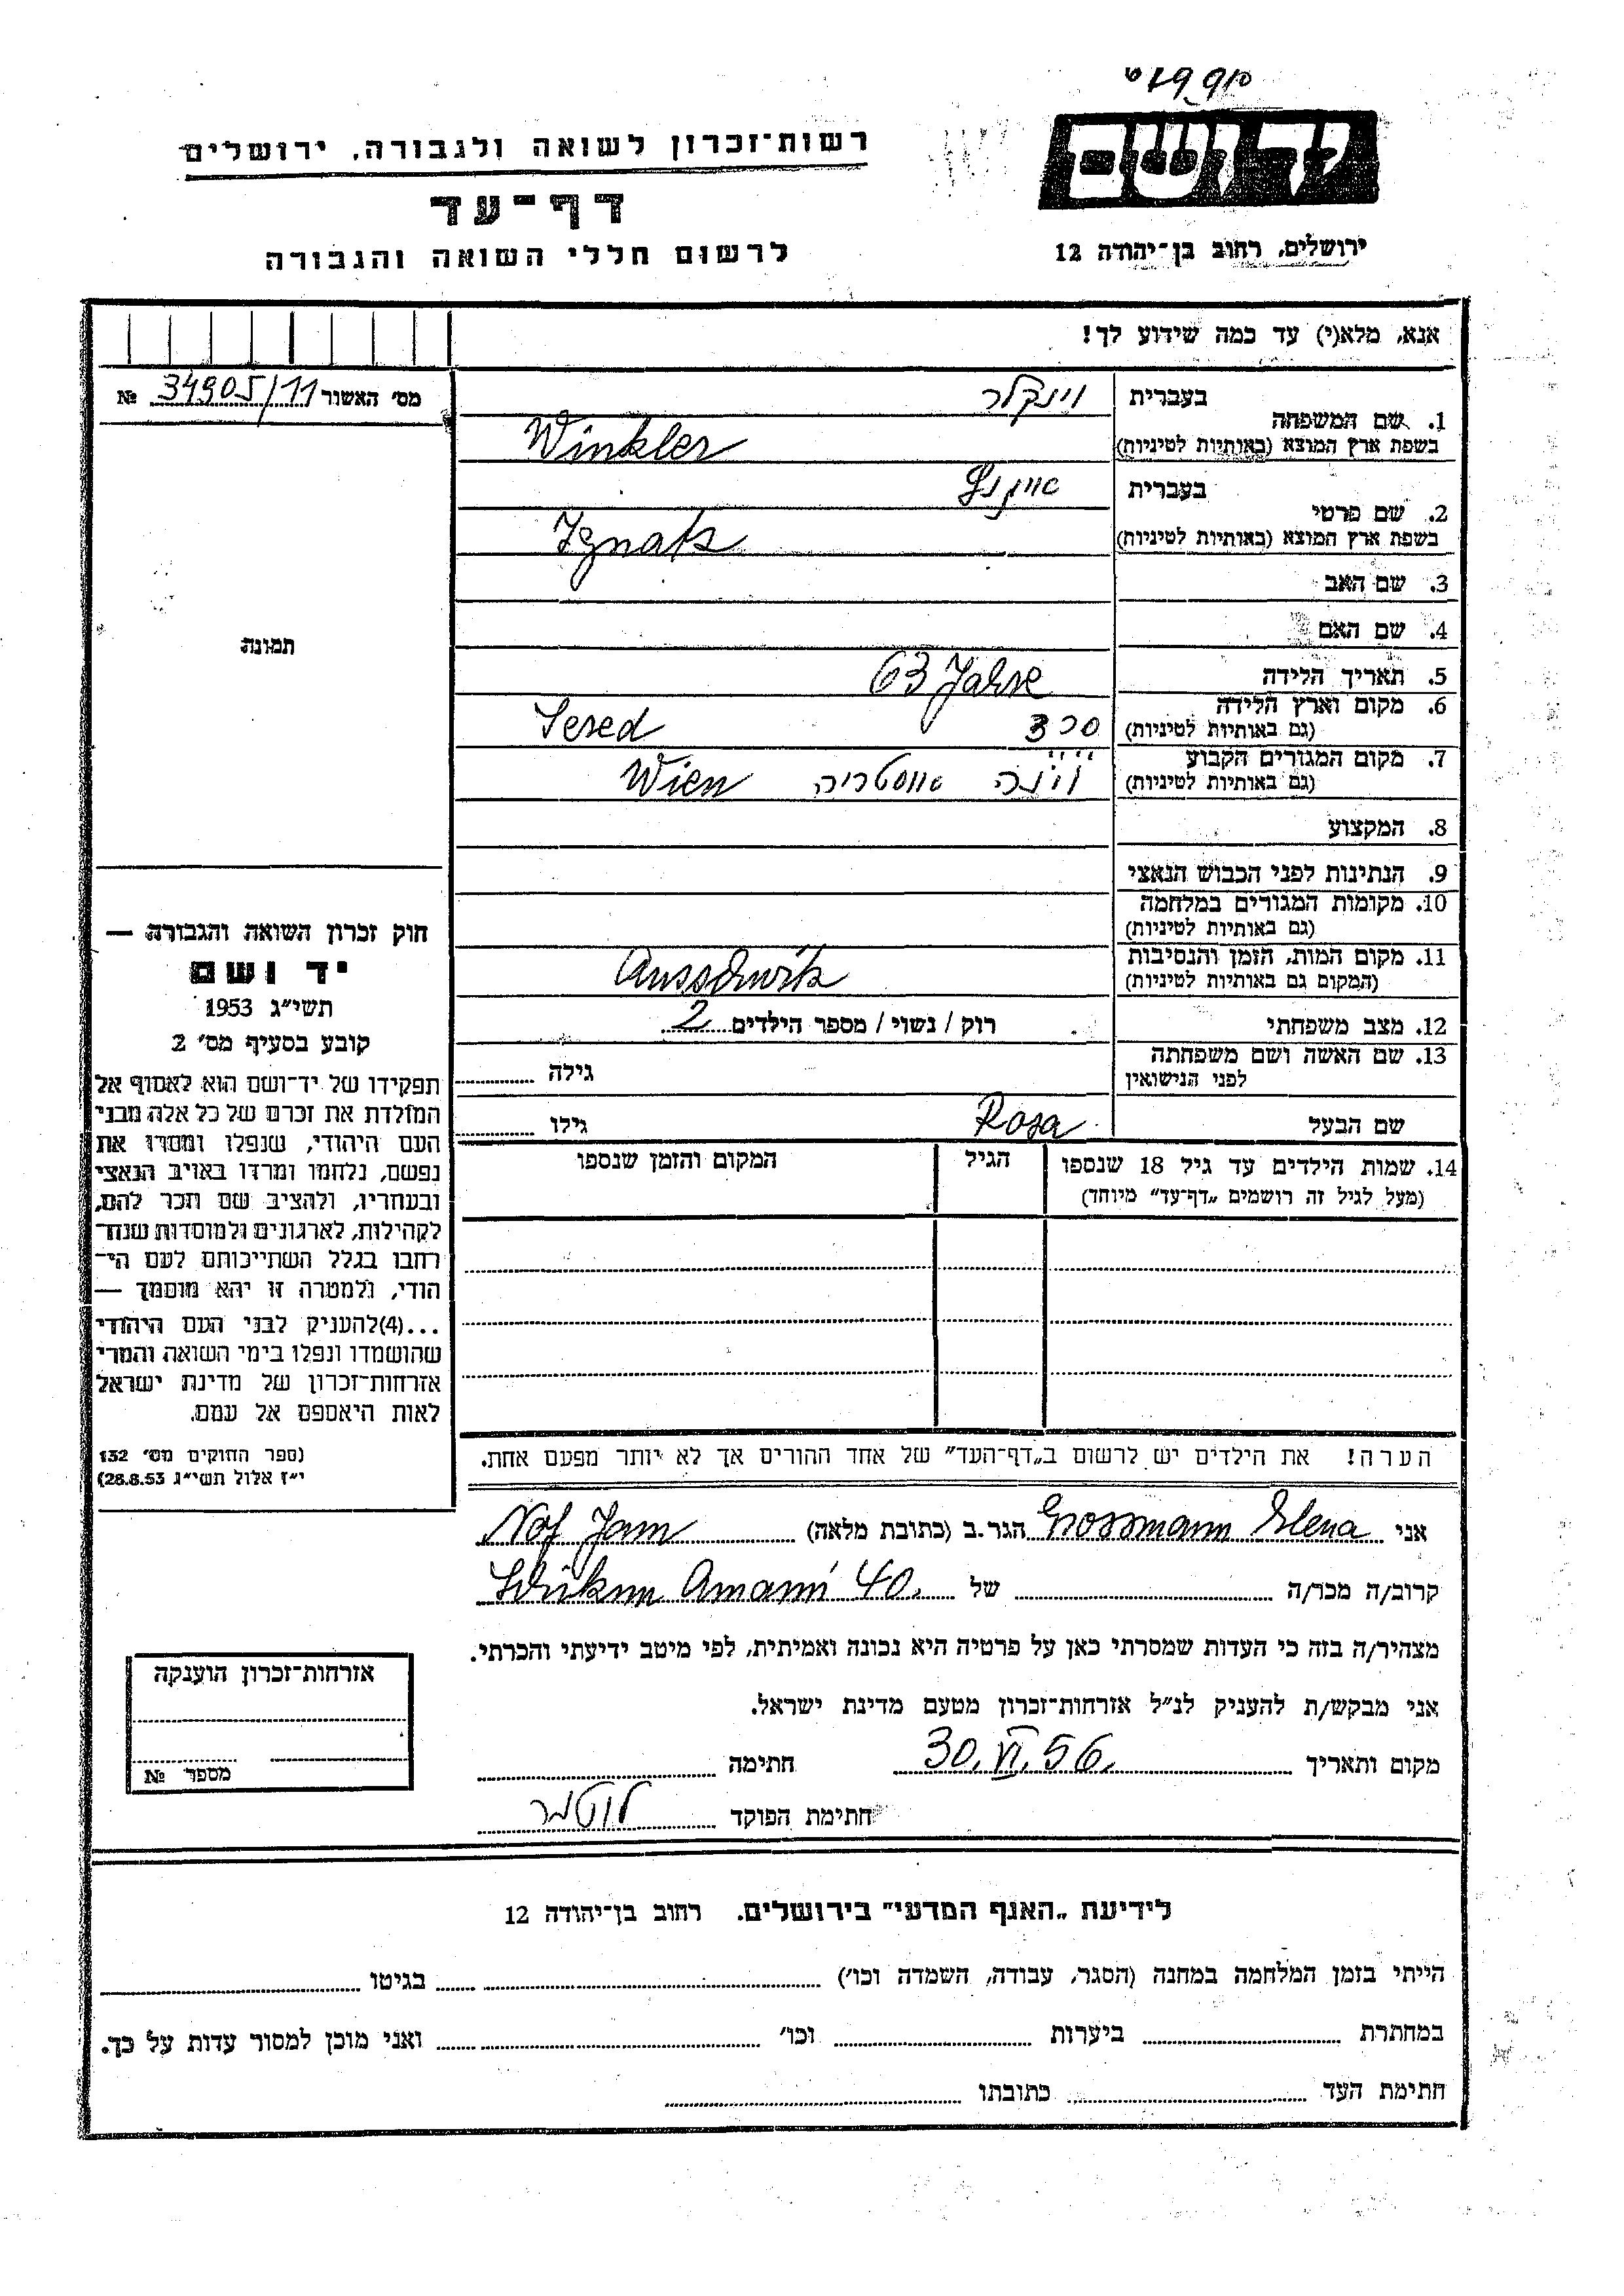 רשות־זכרון לשואה ולגבורה, ירושלים
יד ושם
דף־עד
לרשום חללי השואה והגבורה
ירושלים, רחוב בן־יהודה 12
אנא, מלא(י) עד כמה שידוע לך!
מס׳ האשור 34905/11 №
1. שם המשפחה
בעברית וינקלר
בשפת ארץ המוצא (באותיות לטיניות) Winkler
2. שם פרטי
בעברית
בשפת ארץ המוצא (באותיות לטיניות) Ignats
3. שם האב
4. שם האם
5. תאריך הלידה 63 Jahre
6. מקום וארץ הלידה
(גם באותיות לטיניות) Sered
7. מקום המגורים הקבוע
(גם באותיות לטיניות) וינה אוסטריה Wien
8. המקצוע
9. הנתינות לפני הכבוש הנאצי
10. מקומות המגורים במלחמה
(גם באותיות לטיניות)
11. מקום המות, הזמן והנסיבות
(המקום גם באותיות לטיניות) Ausschwitz
12. מצב משפחתי רוק / נשוי / מספר הילדים 2
13. שם האשה ושם משפחתה
לפני הנישואין גילה
שם הבעל Rosa גילו
14. שמות הילדים עד גיל 18 שנספו
(מעל לגיל זה רושמים „דף־עד״ מיוחד)
הגיל
המקום והזמן שנספו
תמונה
חוק זכרון השואה והגבורה —
יד ושם
תשי״ג 1953
קובע בסעיף מס׳ 2
תפקידו של יד־ושם הוא לאסוף אל
המולדת את זכרם של כל אלה מבני
העם היהודי, שנפלו ומסרו את
נפשם, נלחמו ומרדו באויב הנאצי
ובעוזריו, ולהציב שם וזכר להם,
לקהילות, לארגונים ולמוסדות שנח־
רבו בגלל השתייכותם לעם הי־
הודי, ולמטרה זו יהא מוסמך —
...(4)להעניק לבני העם היהודי
שהושמדו ונפלו בימי השואה והמרי
אזרחות־זכרון של מדינת ישראל
לאות היאספם אל עמם.
(ספר החוקים מס׳ 132
י״ז אלול תשי״ג 28.8.53)
הערה! את הילדים יש לרשום ב„דף־העד״ של אחד ההורים אך לא יותר מפעם אחת.
אני Grossmann Elena הגר.ב (כתובת מלאה) Nof Jam
קרוב/ה מכר/ה של Schikun Amami 40.
מצהיר/ה בזה כי העדות שמסרתי כאן על פרטיה היא נכונה ואמיתית, לפי מיטב ידיעתי והכרתי.
אני מבקש/ת להעניק לנ״ל אזרחות־זכרון מטעם מדינת ישראל.
מקום ותאריך 30. VI. 56. חתימה
חתימת הפוקד
אזרחות־זכרון הוענקה
מספר №
לידיעת „האגף המדעי״ בירושלים, רחוב בן־יהודה 12
הייתי בזמן המלחמה במחנה (הסגר, עבודה, השמדה וכו׳) בגיטו
במחתרת ביערות וכו׳ ואני מוכן למסור עדות על כך.
חתימת העד כתובתו